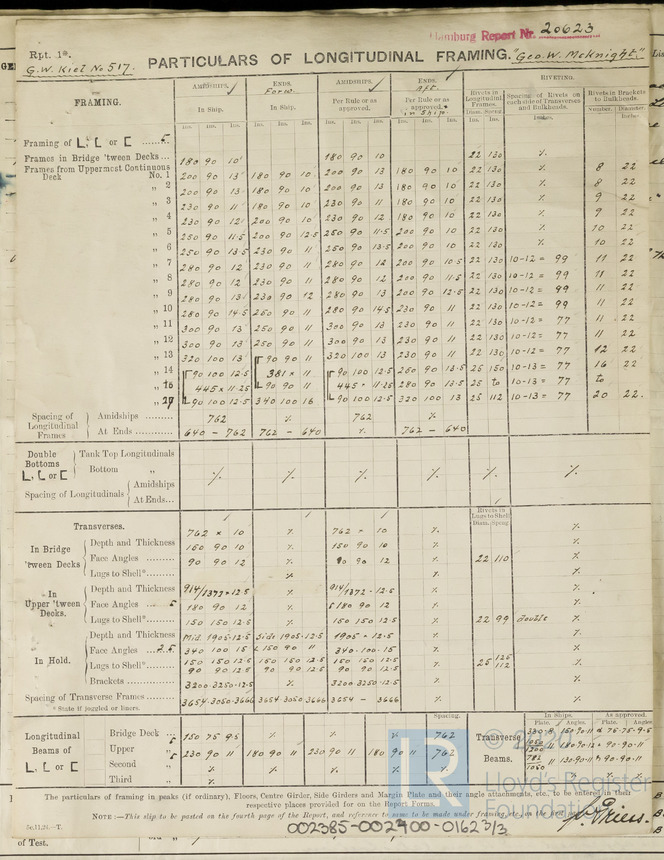 Hamburg Report No. 20623
Rpt. 1*.
G.W. Kiel No 517.
PARTICULARS OF LONGITUDINAL FRAMING. "Geo. W. McKnight."
FRAMING.
AMIDSHIPS. ENDS. Forw. AMIDSHIPS. ENDS. Aft. Rivets in Longitudinal Frames. RIVETING.
In Ship. In Ship. Per Rule or as approved. Per Rule or as approved. in Ship. Diam. Spcng Spacing of Rivets on each side of Transverses and Bulkheads. Rivets in Brackets to Bulkheads. Number. Diameter
Ins. Ins. Ins. Ins. Ins. Ins. Ins. Ins. Ins. Ins. Ins. Ins.
Framing of L, C or C
Frames in Bridge 'tween Decks... 180 90 10 180 90 10 22 130 %
Frames from Uppermost Continuous
Deck No. 1 200 90 13 180 90 10 200 90 13 180 90 10 22 130 % 8 22
„ 2 200 90 13 180 90 10 200 90 13 180 90 10 22 130 % 8 22
„ 3 230 90 11 180 90 10 230 90 11 180 90 10 22 130 % 9 22
„ 4 230 90 12 200 90 10 230 90 12 180 90 10 22 130 % 9 22
„ 5 250 90 11.5 200 90 12.5 250 90 11.5 200 90 10 22 130 % 10 22
„ 6 250 90 13.5 230 90 11 250 90 13.5 200 90 10 22 130 % 10 22
„ 7 280 90 12 230 90 11 280 90 12 200 90 10.5 22 130 10-12 = 99 11 22
„ 8 280 90 12 230 90 11 280 90 12 200 90 11.5 22 130 10-12 = 99 11 22
„ 9 280 90 13 230 90 12 280 90 13 200 90 12.5 22 130 10-12 = 99 11 22
„ 10 280 90 14.5 250 90 11 280 90 14.5 230 90 11 22 130 10-12 = 99 11 22
„ 11 300 90 13 250 90 11 300 90 13 230 90 11 22 130 10-12 = 77 11 22
„ 12 300 90 13 250 90 11 300 90 13 230 90 11 22 130 10-12 = 77 11 22
„ 13 320 100 13 90 90 11 320 100 13 230 90 11 22 130 10-12 = 77 12 22
„ 14 90 100 12.5 381 × 11 90 100 12.5 250 90 13.5 25 150 10-13 = 77 16 22
„ 445 × 11.25 90 90 11 445 × 11.25 280 90 13.5 25 to 10-13 = 77 to
„ 90 100 12.5 340 100 16 90 100 12.5 320 100 13 25 112 10-13 = 77 20 22.
Spacing of Longitudinal Frames
Amidships 762 % 762 %
At Ends 640 - 762 762 - 640 % 762 - 640
Double Bottoms L, C or C
Tank Top Longitudinals
Bottom „ % % % % % %
Spacing of Longitudinals Amidships
At Ends...
Transverses. Rivets in Lugs to Shell Diam. Spcng
In Bridge 'tween Decks
Depth and Thickness 762 × 10 % 762 × 10 % %
Face Angles 150 90 10 % 150 90 10 % %
Lugs to Shell* 90 90 12 % 90 90 12 % 22 110 %
In Upper 'tween Decks.
Depth and Thickness 914/1372 × 12.5 % 914/1372 - 12.5 % %
Face Angles 180 90 12 % 180 90 12 % %
Lugs to Shell* 150 150 12.5 % 150 150 12.5 % 22 99 Double %
In Hold.
Depth and Thickness Mid. 1905-12.5 Side 1905-12.5 1905 - 12.5 % %
Face Angles 340 100 15 150 90 11 340-100-15 % %
Lugs to Shell* 150 150 12.5 150 150 12.5 150 150 12.5 % 25 125 %
90 90 12.5 90 90 12.5 90 90 12.5 112
Brackets 3200 3250-12.5 % 3200 3250-12.5 % %
Spacing of Transverse Frames 3654-3050-3666 3654 3050 3666 3654 - 3666 % %
* State if joggled or liners.
Longitudinal Beams of L, C or C
Spacing. Transverse Beams. In Ships. As approved.
Plate. Angles. Plate. Angles
Bridge Deck 150 75 9.5 % % % 762
Upper „ 230 90 11 180 90 11 230 90 11 180 90 11 762
Second „ % % % %
Third „
The particulars of framing in peaks (if ordinary), Floors, Centre Girder, Side Girders and Margin Plate and their angle attachments, etc., to be entered in their
respective places provided for on the Report Forms.
NOTE:—This slip to be pasted on the fourth page of the Report, and reference to same to be made under framing, etc., on the
5c.11,24.—T.
002385-002400-0162 3/3
of Test.
© 2020
LR
Lloyd's Register
Foundation